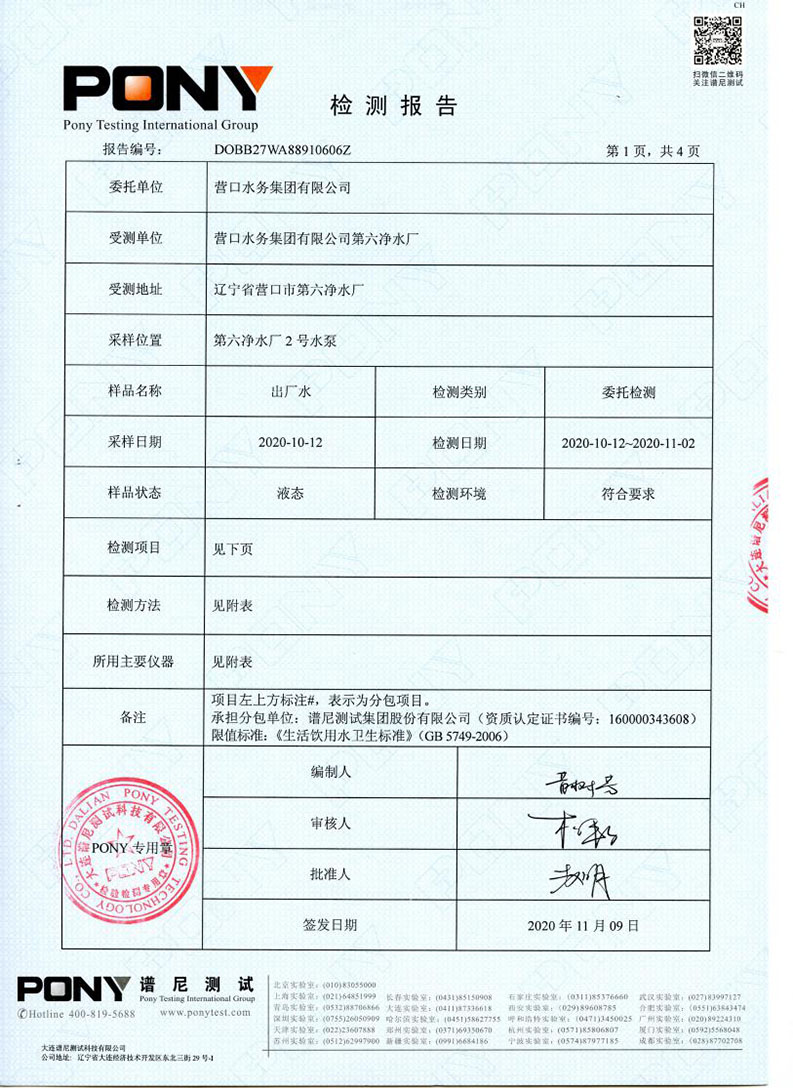 CH
扫微信二维码
关注谱尼测试
PONY
Pony Testing International Group
检测报告
报告编号: DOBB27WA88910606Z 第 1 页，共 4 页
委托单位 营口水务集团有限公司
受测单位 营口水务集团有限公司第六净水厂
受测地址 辽宁省营口市第六净水厂
采样位置 第六净水厂 2 号水泵
样品名称 出厂水 检测类别 委托检测
采样日期 2020-10-12 检测日期 2020-10-12~2020-11-02
样品状态 液态 检测环境 符合要求
检测项目 见下页
检测方法 见附表
所用主要仪器 见附表
备注
项目左上方标注#，表示为分包项目。
承担分包单位：谱尼测试集团股份有限公司（资质认定证书编号：160000343608）
限值标准:《生活饮用水卫生标准》（GB 5749-2006）
编制人
审核人
批准人
签发日期 2020 年 11 月 09 日
DALIAN PONY TESTING TECHNOLOGY CO., LTD.
大连谱尼测试科技有限公司
PONY 专用章
PONY
检验检测专用章
PONY 谱尼测试
Pony Testing International Group
Hotline 400-819-5688 www.ponytest.com
北京实验室: (010)83055000
上海实验室: (021)64851999 长春实验室: (0431)85150908 石家庄实验室: (0311)85376660 武汉实验室: (027)83997127
青岛实验室: (0532)88706866 大连实验室: (0411)87336618 西安实验室: (029)89608785 合肥实验室: (0551)63843474
深圳实验室: (0755)26050909 哈尔滨实验室: (0451)58627755 呼和浩特实验室: (0471)3450025 广州实验室: (020)89224310
天津实验室: (022)23607888 郑州实验室: (0371)69350670 杭州实验室: (0571)85806807 厦门实验室: (0592)5568048
苏州实验室: (0512)62997900 新疆实验室: (0991)6684186 宁波实验室: (0574)87977185 成都实验室: (028)87702708
大连谱尼测试科技有限公司
公司地址: 辽宁省大连经济技术开发区东北三街 29 号-1